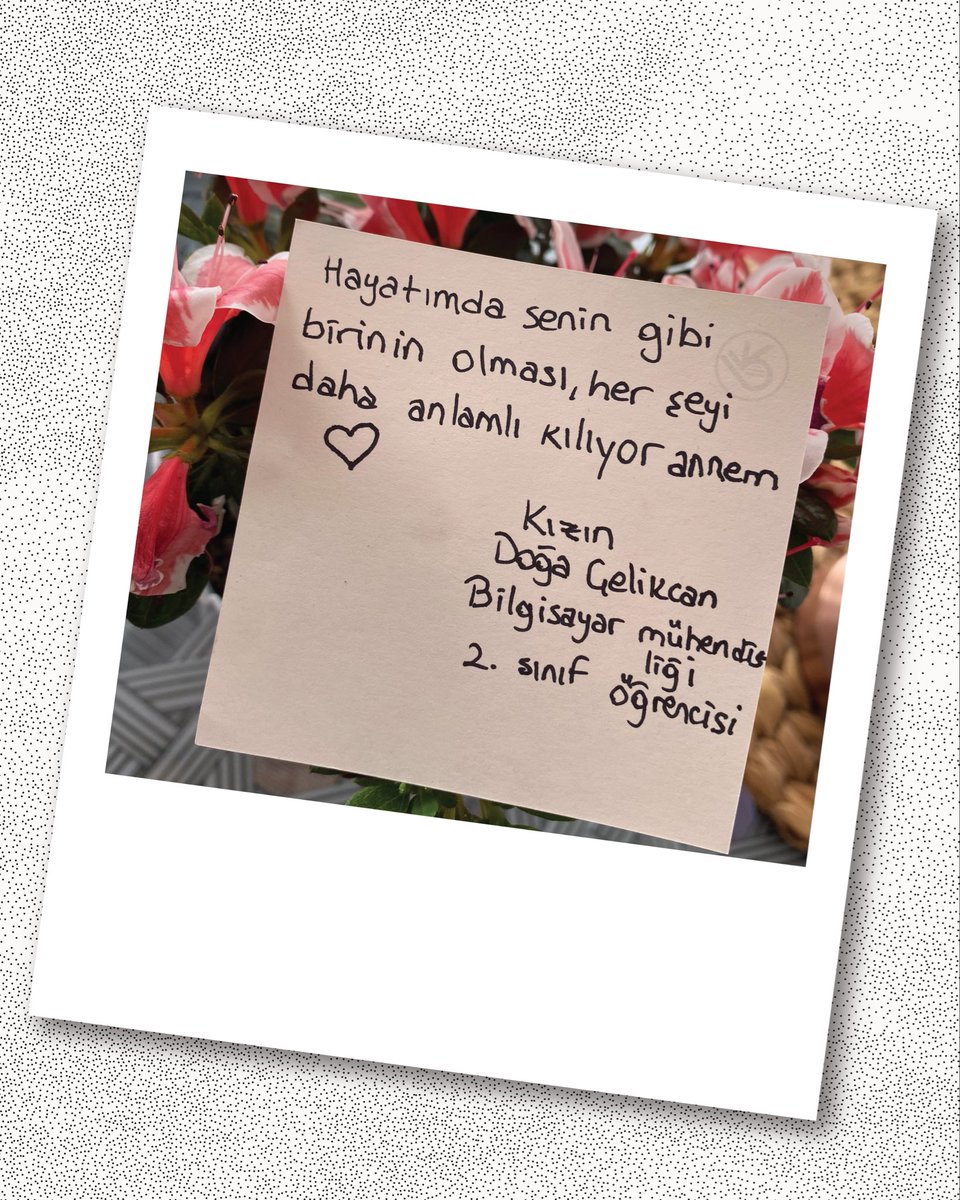 Hayatımda senin gibi
birinin olması, her şeyi
daha anlamlı kılıyor annem
♡
Kızın
Doğa Çelikcan
Bilgisayar mühendis
liği
2. sınıf öğrencisi